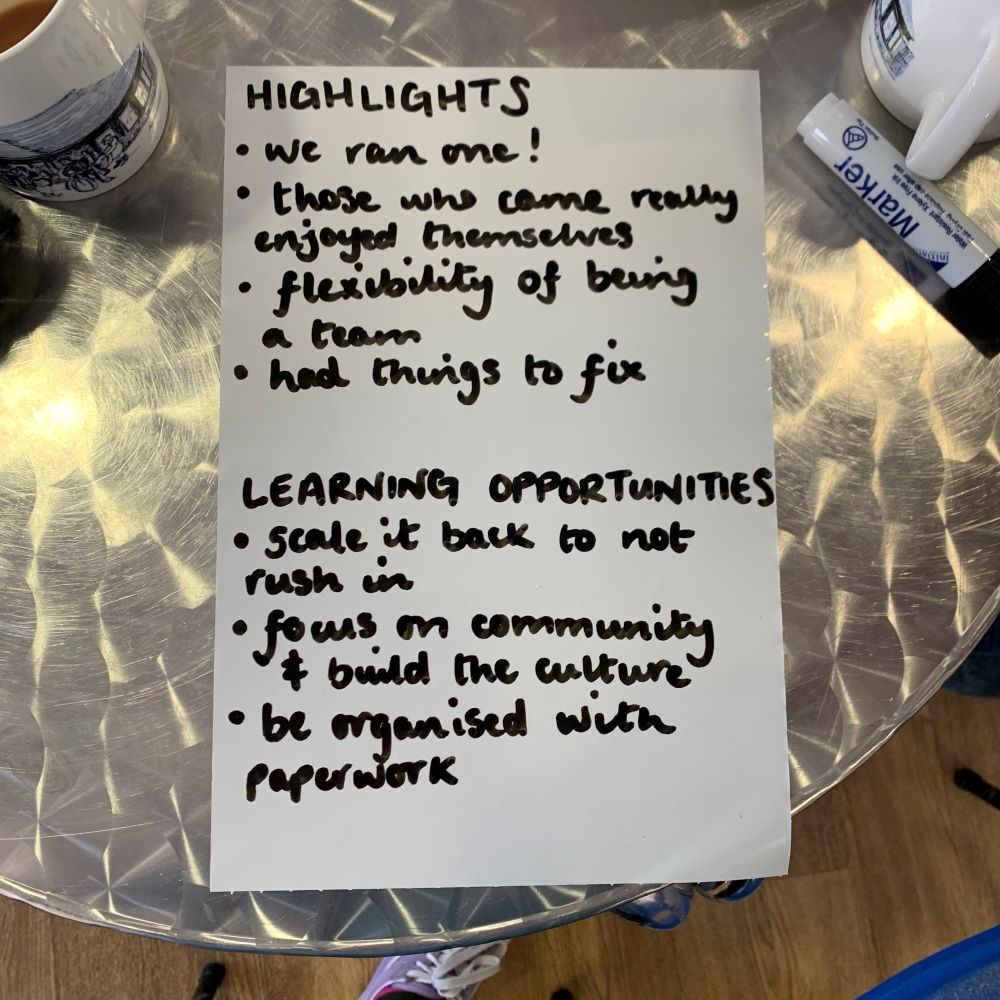 HIGHLIGHTS
• we ran one!
• those who came really
enjoyed themselves
• flexibility of being
a team
• had things to fix
LEARNING OPPORTUNITIES
• scale it back to not
rush in
• focus on community
& build the culture
• be organised with
paperwork
Marker
Water Resistant Xylene Free Ink
Bullet Tip